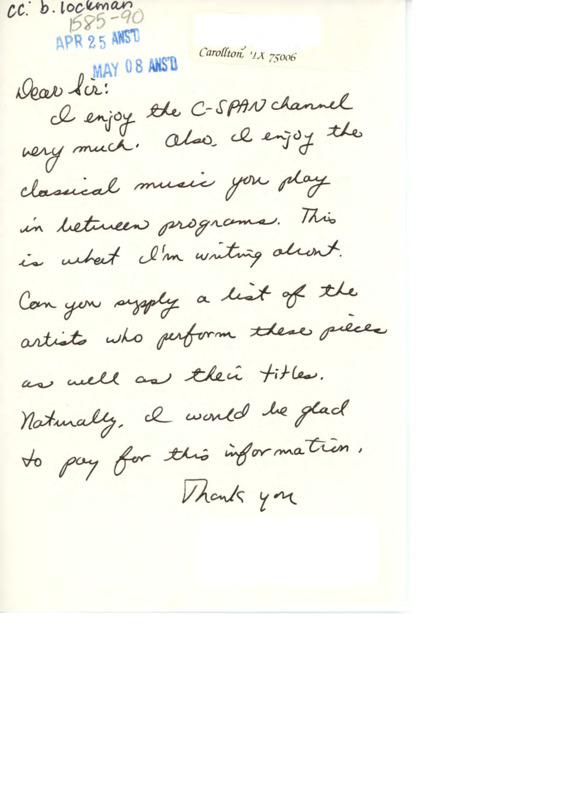 cc: b. lockman
1585-90
APR 25 ANS'D
MAY 08 ANS'D
Carollton, TX 75006
Dear Sir:
I enjoy the C-SPAN channel
very much. Also, I enjoy the
classical music you play
in between programs. This
is what I'm writing about.
Can you supply a list of the
artists who perform these pieces
as well as their titles.
Naturally, I would be glad
to pay for this information.
Thank you